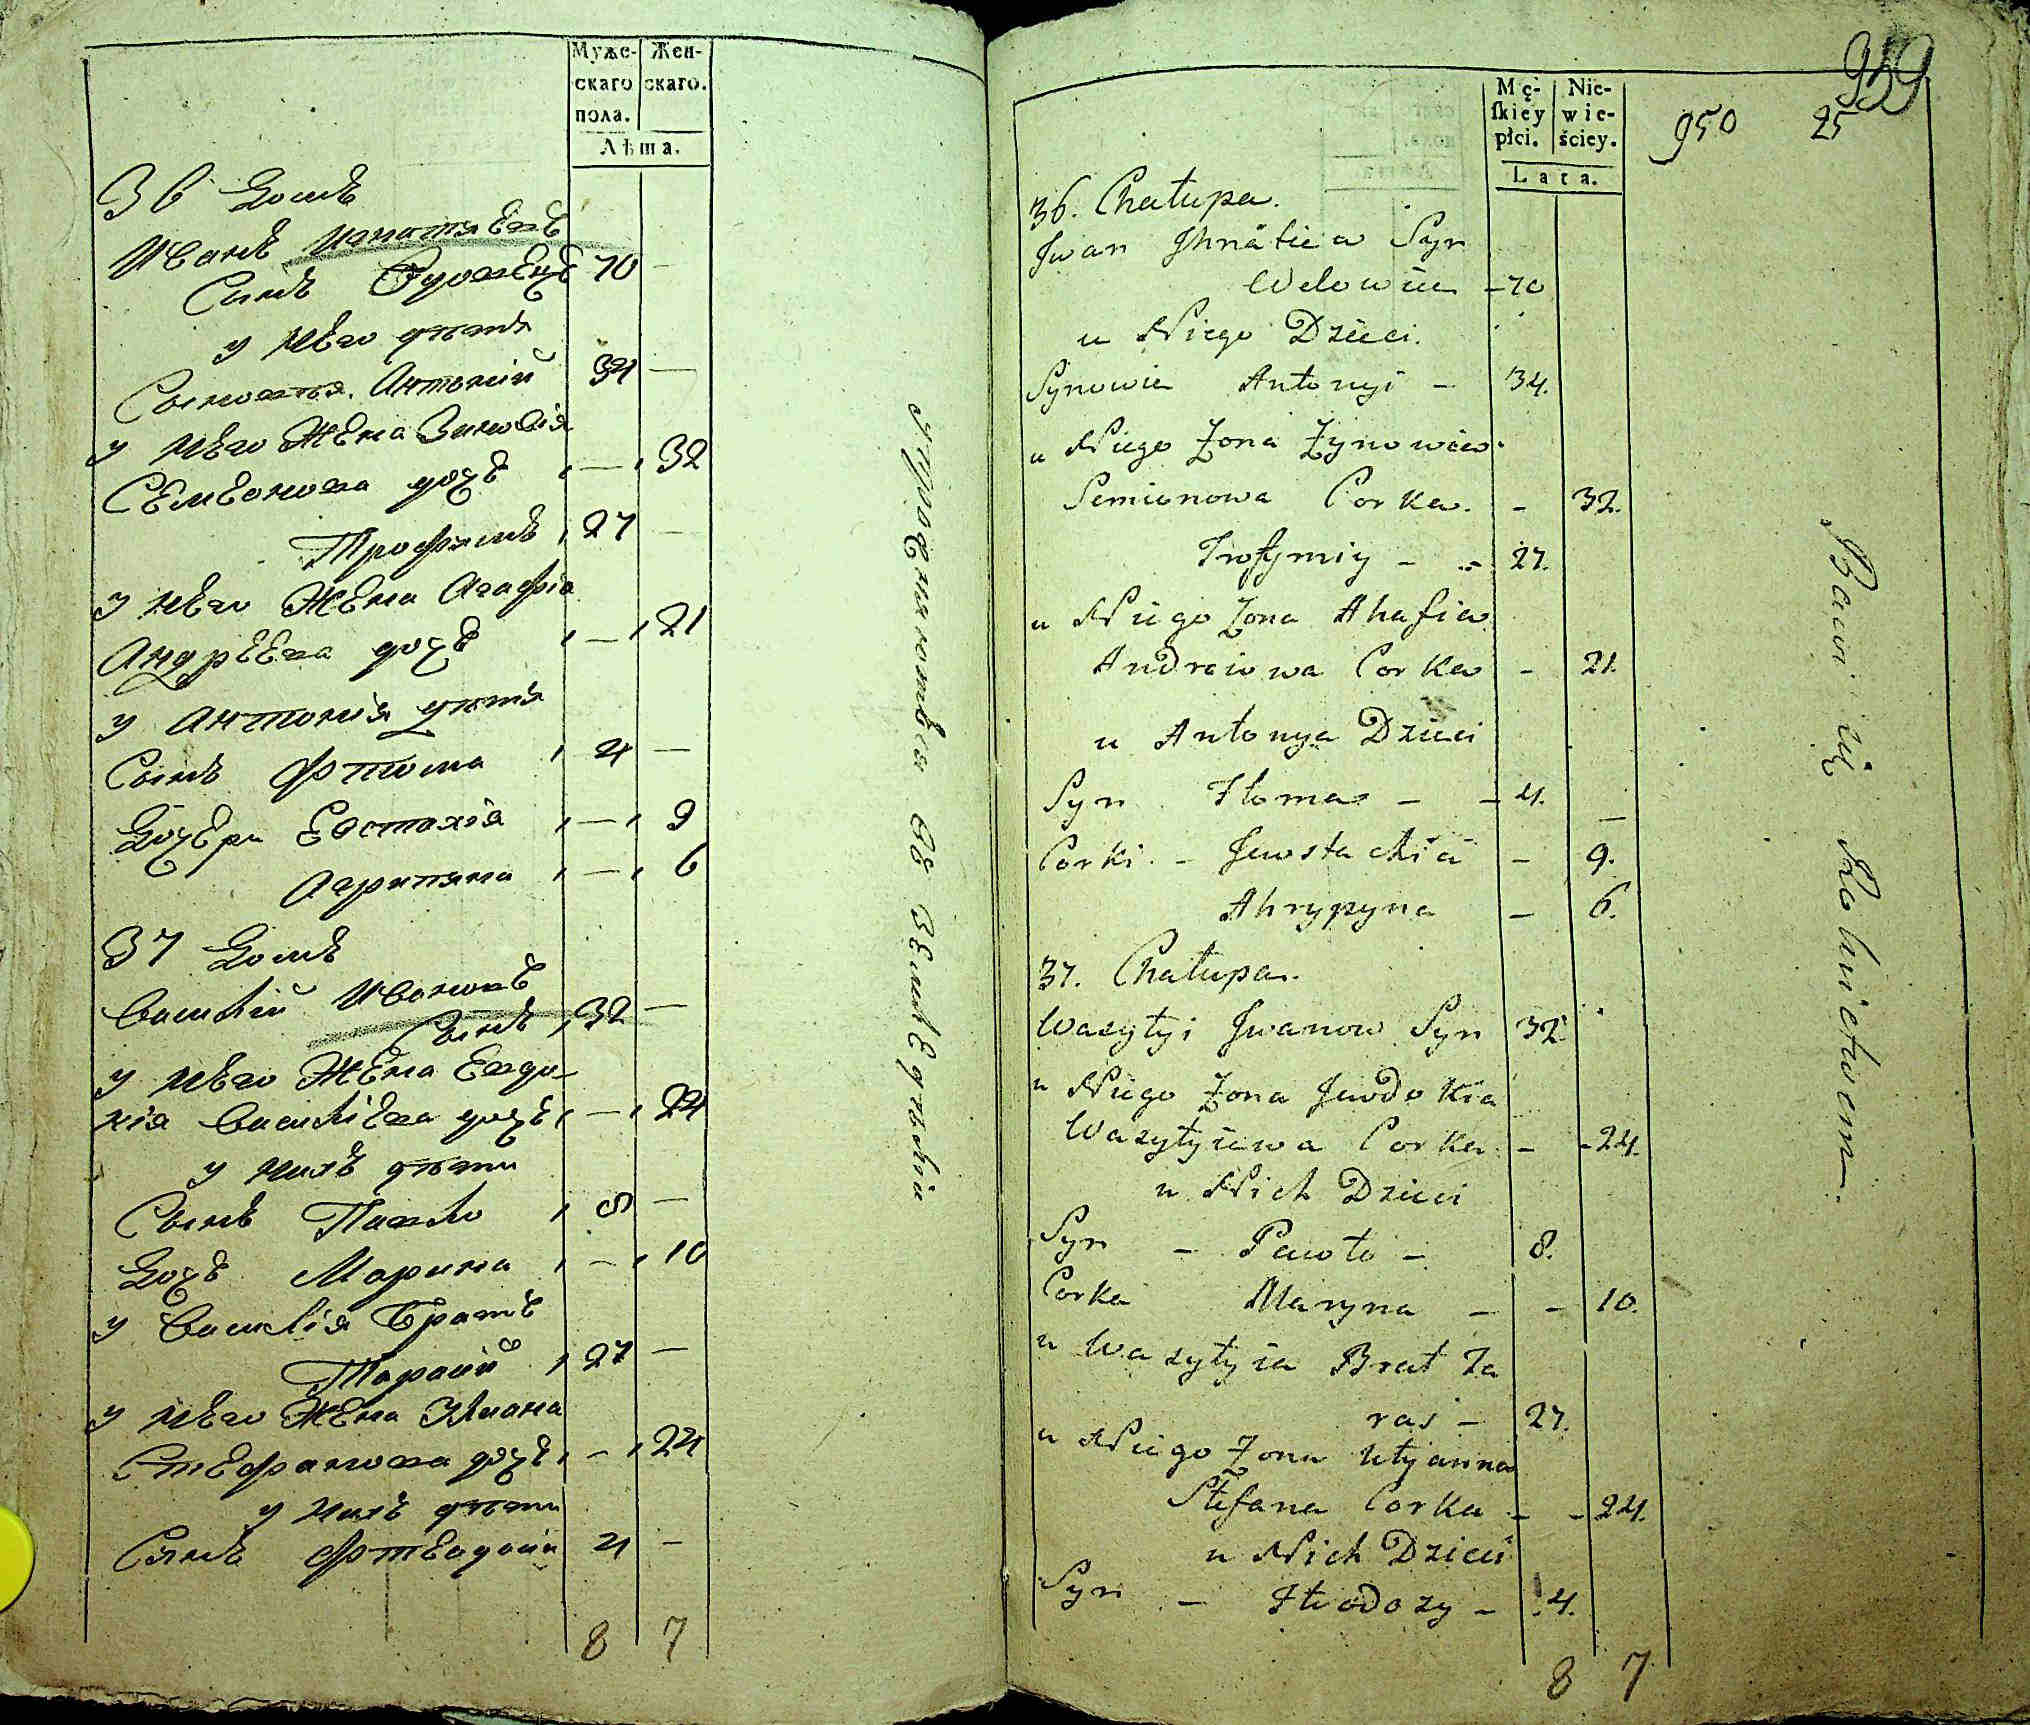 Муже-
скаго
пола.
Жен-
скаго.
Лѣта.
36 Домъ
Иванъ Игнатьевъ
Сынъ Вдовецъ 70 —
у него дѣти
Сыновья. Антоній 34 —
у него Жена Зиновія
Семенова дочь — 32
Трофимъ 27 —
у него Жена Агафія
Андреева дочь — 21
у Антонія дѣти
Сынъ Фтома 4 —
Дочери Евстахія — 9
Агрипина — 6
37 Домъ
Василій Ивановъ
Сынъ 32 —
у него Жена Евдо-
кія Василіева дочь — 24
у нихъ дѣти
Сынъ Павло 8 —
Дочь Марина — 10
у Василія братъ
Тарасій 27 —
у него Жена Улиана
Стефанова дочь — 24
у нихъ дѣти
Сынъ Фтеодосій 4 —
8 7
упражняются въ Земледѣліи
939
950 25
Mę-
ſkiey
płci.
Nie-
wie-
ściey.
Lata.
36. Chałupa.
Jwan Jhnatiew Syn
Wdowiec - 70
u Niego Dzieci.
Synowie Antonyi - 34.
u Niego Żona Zynowia
Semionowa Corka. - 32.
Trofymiy - - 27.
u Niego Żona Ahafia
Andreiowa Corka - 21.
u Antonya Dzieci
Syn Ftoma - - 4. —
Corki. - Jewstachia - 9.
Ahrypyna - 6.
37. Chałupa.
Wasyłyi Jwanow Syn 32
u Niego Żona Jewdokia
Wasyłyiewa Corka - - 24.
u Nich Dzieci
Syn - Pawło - 8.
Corka Maryna - - 10.
u Wasyłyia Brat Ta
ras - 27.
u Niego Żona Ułyanna
Stefana Corka - - 24.
u Nich Dzieci
Syn - Fteodozy - 4.
8 7
Bawi się Rolnictwem.